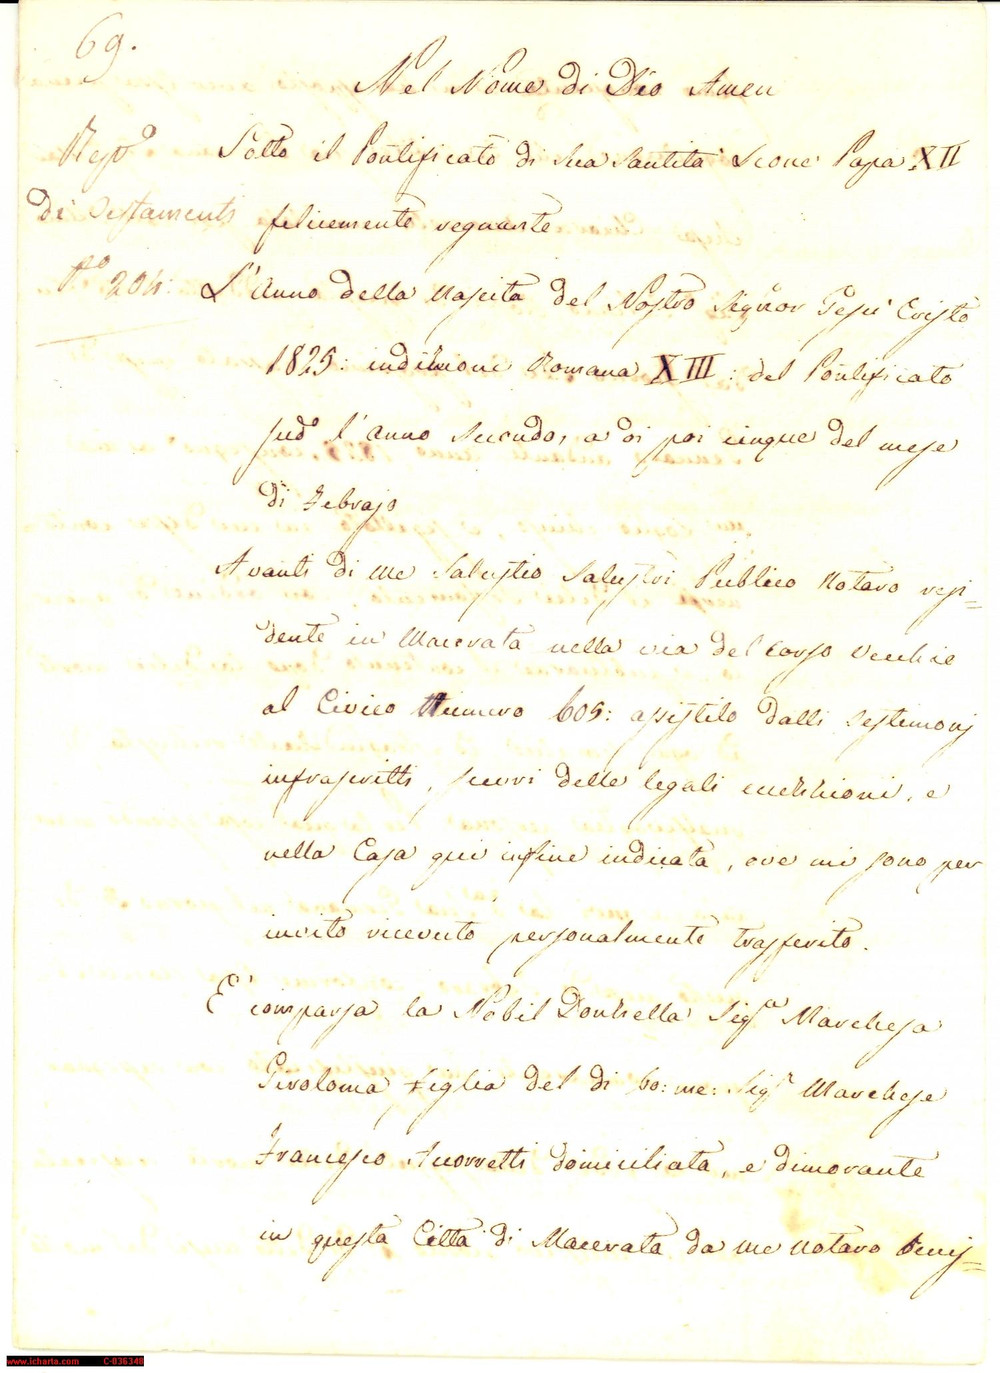 69.
Nel Nome di Dio Amen
Regº Sotto il Pontificato di Sua Santità Leone Papa XII
Di Testamenti felicemente regnante
Nº 204: L'Anno della Nascita del Nostro Signor Gesù Cristo
1825: indizione Romana XIII: del Pontificato
sudº l'anno secondo, a di poi cinque del mese
di Febrajo
Avanti di me Salustio Salustri Publico Notaro resi=
dente in Macerata nella via del Corso Vecchio
al Civico Numero 605: assistito dalli Testimonj
infrascritti, scevri delle legali eccezzioni, e
nella Casa qui infine indicata, ove mi sono per
invito ricevuto personalmente trasferito.
E' comparsa la Nobil Donzella Sigrª Marchesa
Giroloma Figlia del di bo: me: Sigr Marchese
Francesco Accorretti domiciliata, e dimorante
in questa Città di Macerata da me Notaro benis=
www.icharta.com C-036348